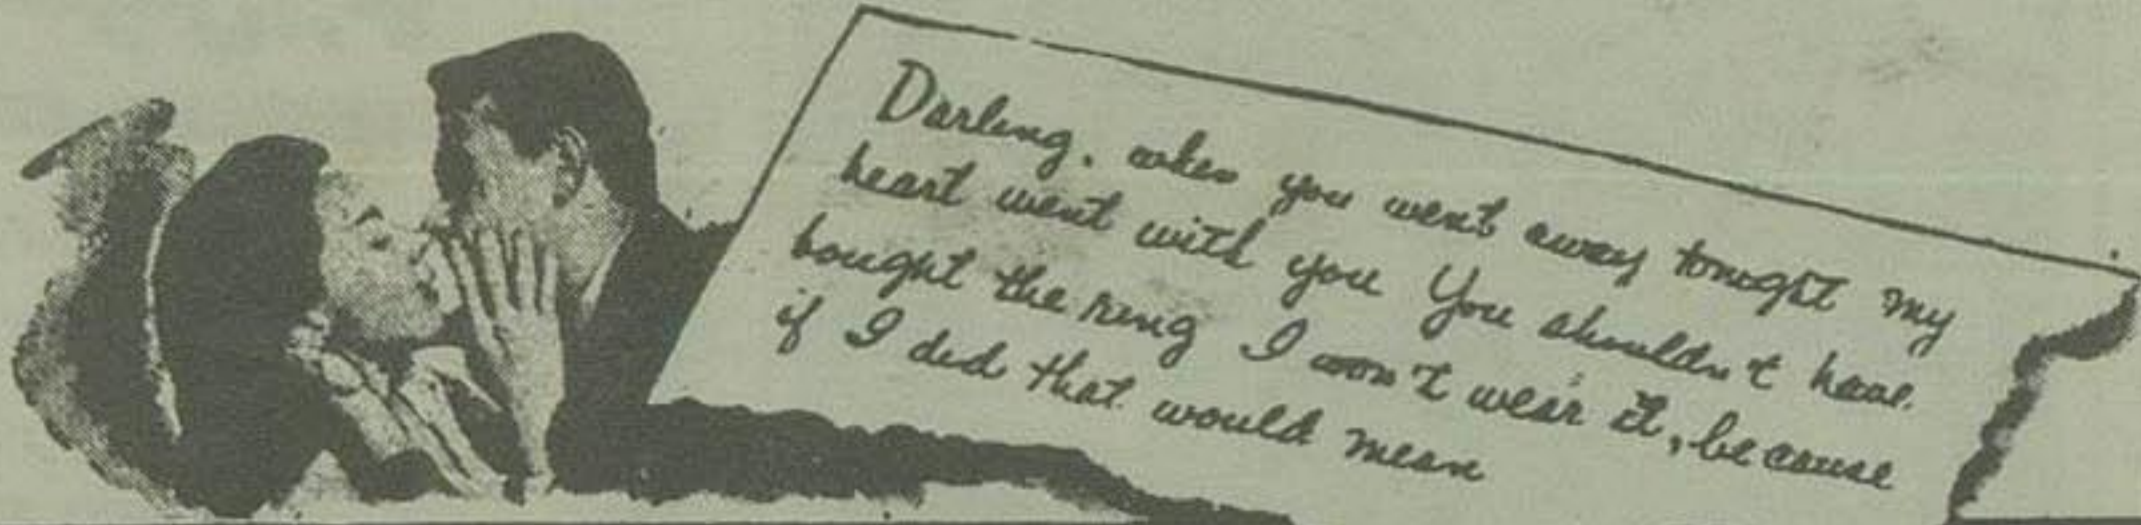 Darling, when you went away tonight my
heart went with you You shouldn't have
bought the ring I won't wear it, because
if I did that would mean